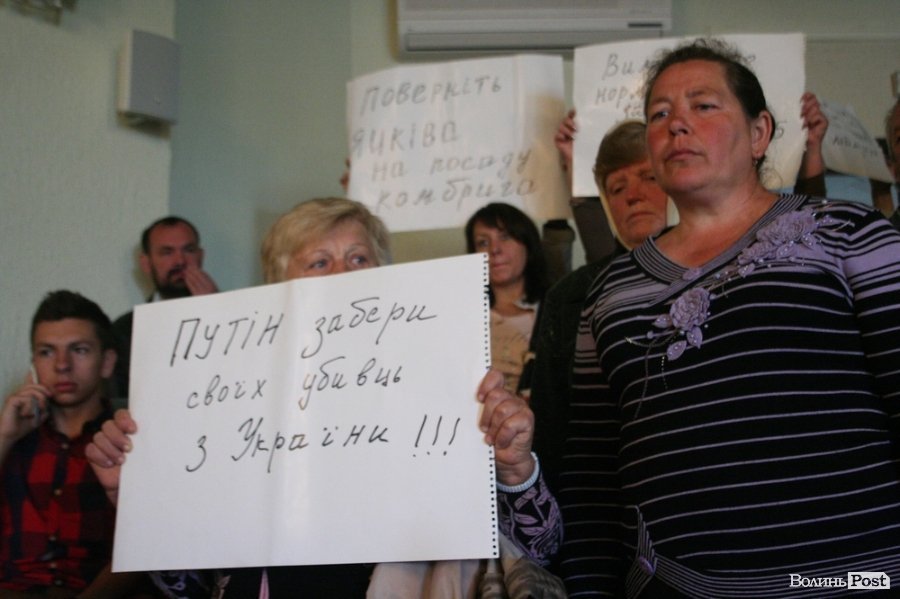 Поверніть
Яцківа
на посаду
комбрига
норм
ПУТІН забери
своїх убивць
з України !!!
ВолиньPost